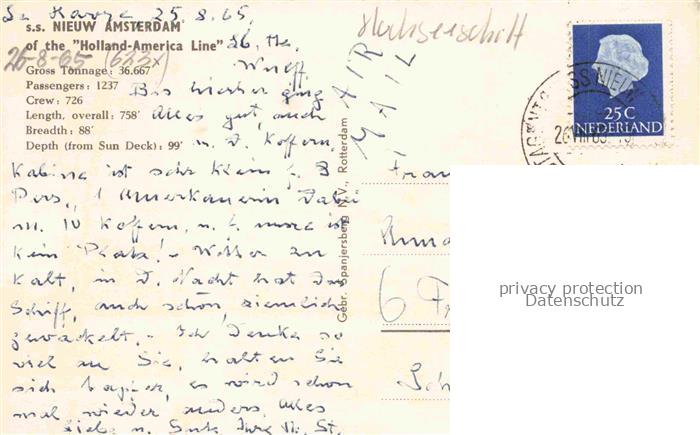 Le Havre 25.8.65
s.s. NIEUW AMSTERDAM
of the "Holland-America Line"
26-8-65
Gross Tonnage: 36.667
Passengers: 1237
Crew: 726
Length, overall: 758'
Breadth: 88'
Depth (from Sun Deck): 99'
Bis hierher ging
Alles gut, auch
m. d. Koffern,
Kabine ist sehr klein f. 3
Pers., 1 Amerikanerin dabei
m. 10 Koffern, u. f. more ist
kein Platz! - Wetter zu
kalt, in d. Nacht hat das
Schiff, auch schon, ziemlich
gewackelt. - Ich denke so
viel an Sie, halten Sie
sich tapfer, es wird schon
mal wieder anders. Alles
Liebe u. Gute Ihre M. St.
Hochseeschiff
AIR
MAIL
Gebr. Spanjersberg N.V., Rotterdam
25C
NEDERLAND
Frau
6 Fr
privacy protection
Datenschutz